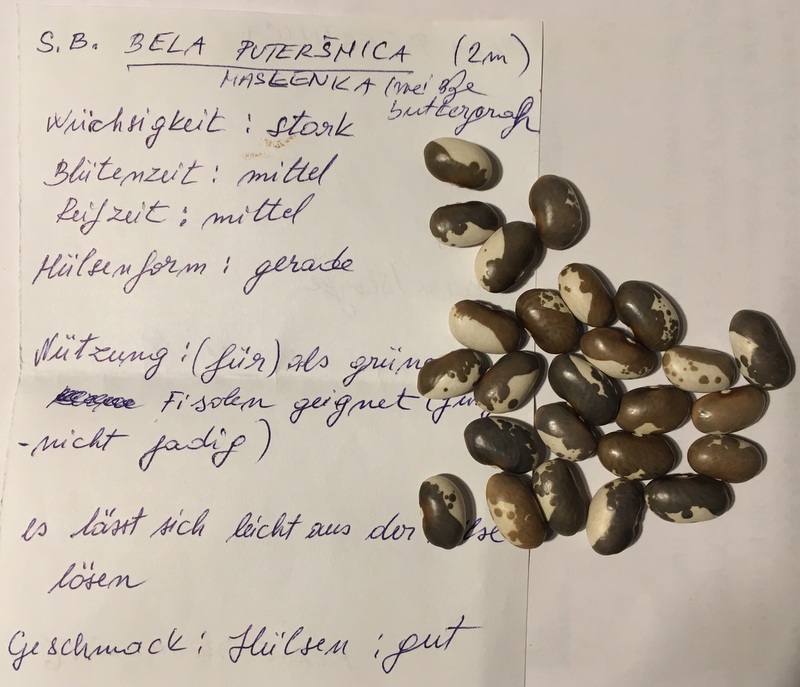 S.B. BELA PUTERŠNICA (2m)
MASLENKA (weiße
buttergroß
Wüchsigkeit : stark
Blütenzeit : mittel
Reifzeit : mittel
Hülsenform : gerade
Nützung : (für) als grüne
Fisolen geignet (jung
-nicht fadig)
es lässt sich leicht aus der
lösen
Geschmack : Hülsen : gut